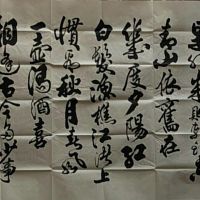 青山依舊在
幾度夕陽紅
白髮漁樵江渚上
慣看秋月春風
一壺濁酒喜
相逢古今多少事